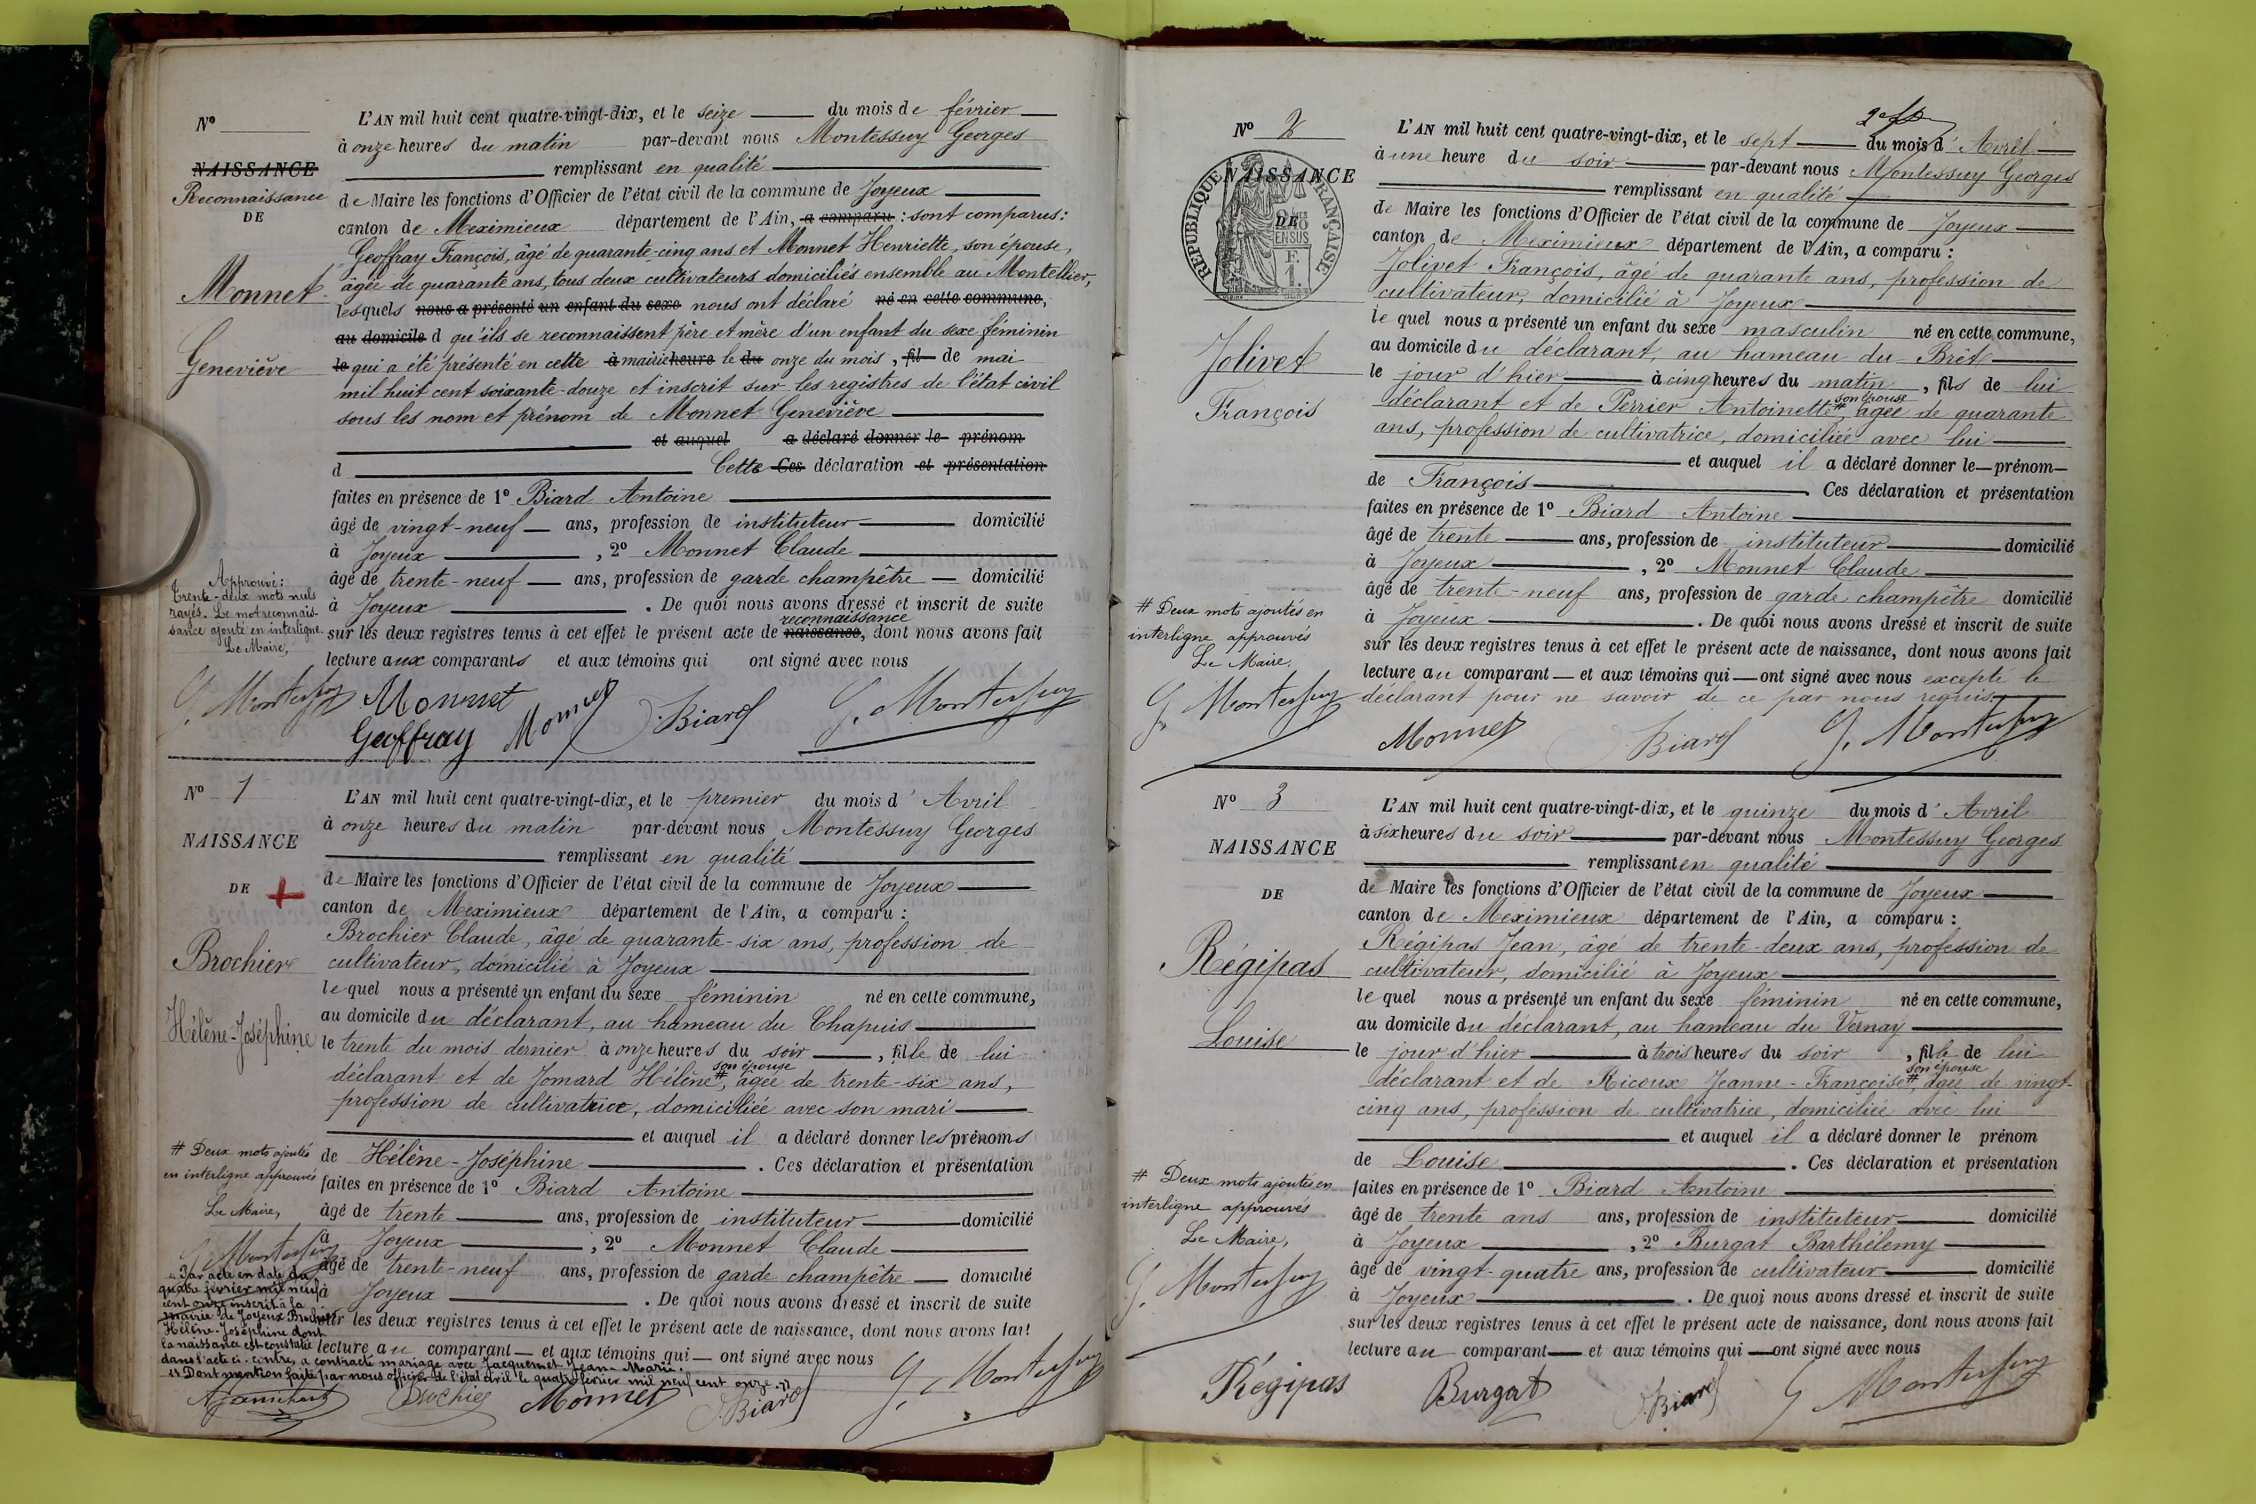 N°
NAISSANCE
Reconnaissance
DE
Monnet
Geneviève
L'AN mil huit cent quatre-vingt-dix, et le seize du mois de février
à onze heures du matin par-devant nous Montessuy Georges
remplissant en qualité
de Maire les fonctions d'Officier de l'état civil de la commune de Joyeux
canton de Meximieux département de l'Ain, a comparu : sont comparus :
Geoffray François, âgé de quarante-cinq ans et Monnet Henriette, son épouse,
âgée de quarante ans, tous deux cultivateurs domiciliés ensemble au Montellier,
lesquels nous a présenté un enfant du sexe nous ont déclaré né en cette commune,
au domicile d qu'ils se reconnaissent père et mère d'un enfant du sexe féminin
le qui a été présenté en cette à mairie heure le du onze du mois, fil de mai
mil huit cent soixante-douze et inscrit sur les registres de l'état civil
sous les nom et prénom de Monnet Geneviève
et auquel a déclaré donner le prénom
d Cette Ces déclaration et présentation
faites en présence de 1° Biard Antoine
âgé de vingt-neuf ans, profession de instituteur domicilié
à Joyeux, 2° Monnet Claude
âgé de trente-neuf ans, profession de garde champêtre domicilié
à Joyeux. De quoi nous avons dressé et inscrit de suite
reconnaissance
sur les deux registres tenus à cet effet le présent acte de naissance, dont nous avons fait
lecture aux comparants et aux témoins qui ont signé avec nous
Approuvé :
Trente-deux mots nuls
rayés. Le mot reconnais-
sance ajouté en interligne.
Le Maire,
G. Montessuy Monnet
Geoffray Monnet Biard G. Montessuy
N° 1
NAISSANCE
DE
Brochier
Hélène-Joséphine
L'AN mil huit cent quatre-vingt-dix, et le premier du mois d'Avril
à onze heures du matin par-devant nous Montessuy Georges
remplissant en qualité
de Maire les fonctions d'Officier de l'état civil de la commune de Joyeux
canton de Meximieux département de l'Ain, a comparu :
Brochier Claude, âgé de quarante-six ans, profession de
cultivateur, domicilié à Joyeux
lequel nous a présenté un enfant du sexe féminin né en cette commune,
au domicile du déclarant, au hameau du Chapuis
le trente du mois dernier à onze heures du soir, fille de lui
son épouse
déclarant et de Jomard Hélène #, âgée de trente-six ans,
profession de cultivatrice, domiciliée avec son mari
et auquel il a déclaré donner les prénoms
de Hélène-Joséphine. Ces déclaration et présentation
faites en présence de 1° Biard Antoine
âgé de trente ans, profession de instituteur domicilié
à Joyeux, 2° Monnet Claude
âgé de trente-neuf ans, profession de garde champêtre domicilié
à Joyeux. De quoi nous avons dressé et inscrit de suite
sur les deux registres tenus à cet effet le présent acte de naissance, dont nous avons fait
lecture au comparant et aux témoins qui ont signé avec nous
# Deux mots ajoutés
en interligne approuvés
Le Maire,
G. Montessuy
"Par acte en date du
quatre février mil neuf
cent onze inscrit à la
mairie de Joyeux Brochier
Hélène-Joséphine dont
la naissance est constatée
dans l'acte ci-contre, a contracté mariage avec Jacquemet Jean-Marie.
"Dont mention faite par nous officier de l'état civil le quatre février mil neuf cent onze."
Brochier Monnet Biard G. Montessuy
N° 2
NAISSANCE
DE
RÉPUBLIQUE FRANÇAISE
Jolivet
François
2e f
L'AN mil huit cent quatre-vingt-dix, et le sept du mois d'Avril
à une heure du soir par-devant nous Montessuy Georges
remplissant en qualité
de Maire les fonctions d'Officier de l'état civil de la commune de Joyeux
canton de Meximieux département de l'Ain, a comparu :
Jolivet François, âgé de quarante ans, profession de
cultivateur, domicilié à Joyeux
lequel nous a présenté un enfant du sexe masculin né en cette commune,
au domicile du déclarant, au hameau du Brêt
le jour d'hier à cinq heures du matin, fils de lui
son épouse
déclarant et de Perrier Antoinette #, âgée de quarante
ans, profession de cultivatrice, domiciliée avec lui
et auquel il a déclaré donner le prénom
de François. Ces déclaration et présentation
faites en présence de 1° Biard Antoine
âgé de trente ans, profession de instituteur domicilié
à Joyeux, 2° Monnet Claude
âgé de trente-neuf ans, profession de garde champêtre domicilié
à Joyeux. De quoi nous avons dressé et inscrit de suite
sur les deux registres tenus à cet effet le présent acte de naissance, dont nous avons fait
lecture au comparant et aux témoins qui ont signé avec nous excepté le
déclarant pour ne savoir de ce par nous requis.
# Deux mots ajoutés en
interligne approuvés
Le Maire,
G. Montessuy
Monnet Biard G. Montessuy
N° 3
NAISSANCE
DE
Régipas
Louise
L'AN mil huit cent quatre-vingt-dix, et le quinze du mois d'Avril
à six heures du soir par-devant nous Montessuy Georges
remplissant en qualité
de Maire les fonctions d'Officier de l'état civil de la commune de Joyeux
canton de Meximieux département de l'Ain, a comparu :
Régipas Jean, âgé de trente-deux ans, profession de
cultivateur, domicilié à Joyeux
lequel nous a présenté un enfant du sexe féminin né en cette commune,
au domicile du déclarant, au hameau du Vernay
le jour d'hier à trois heures du soir, fille de lui
son épouse
déclarant et de Ricoux Jeanne-Françoise #, âgée de vingt-
cinq ans, profession de cultivatrice, domiciliée avec lui
et auquel il a déclaré donner le prénom
de Louise. Ces déclaration et présentation
faites en présence de 1° Biard Antoine
âgé de trente ans ans, profession de instituteur domicilié
à Joyeux, 2° Burgat Barthélemy
âgé de vingt-quatre ans, profession de cultivateur domicilié
à Joyeux. De quoi nous avons dressé et inscrit de suite
sur les deux registres tenus à cet effet le présent acte de naissance, dont nous avons fait
lecture au comparant et aux témoins qui ont signé avec nous
# Deux mots ajoutés en
interligne approuvés
Le Maire,
G. Montessuy
Régipas Burgat Biard G. Montessuy